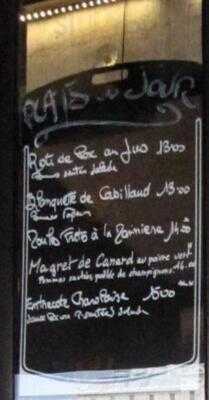 PLATS du JOUR
Roti de Porc au Jus 13.00
Pommes sautées Salade
Blanquette de Cabillaud 13.00
Pommes Vapeur
Moules Frites à la Marinière 14.00
Magret de Canard au poivre vert
Pommes sautées poêlée de champignons 16.00
Entrecote Charolaise 15.00
Salade